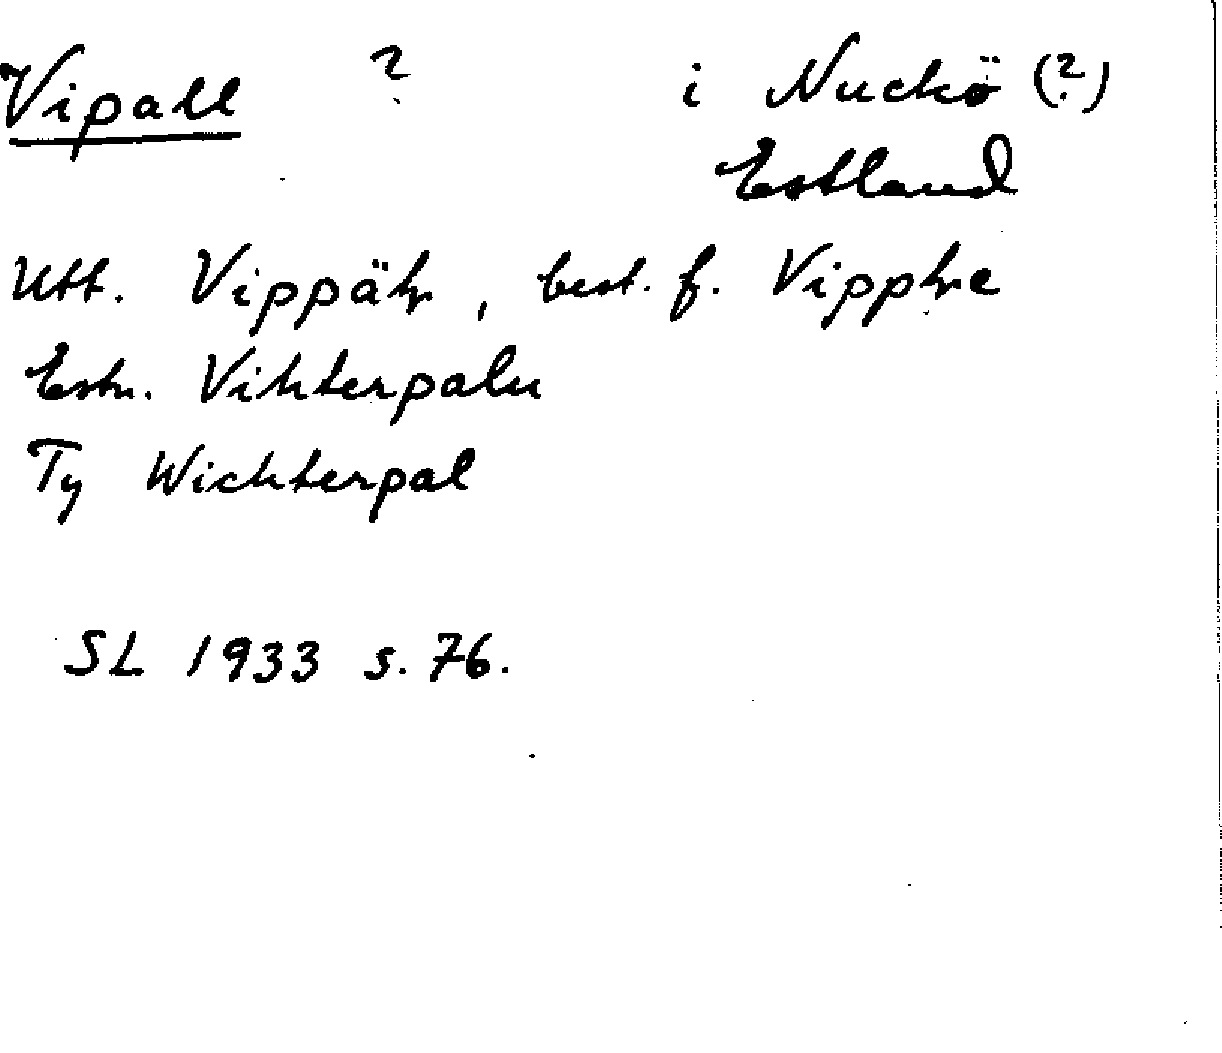 Vipall ? i Nuckö (?)
Estland
Utt. Vippäln, best. f. Vipphe
Estn. Vihterpalu
Ty Wichterpal
SL 1933 s. 76.